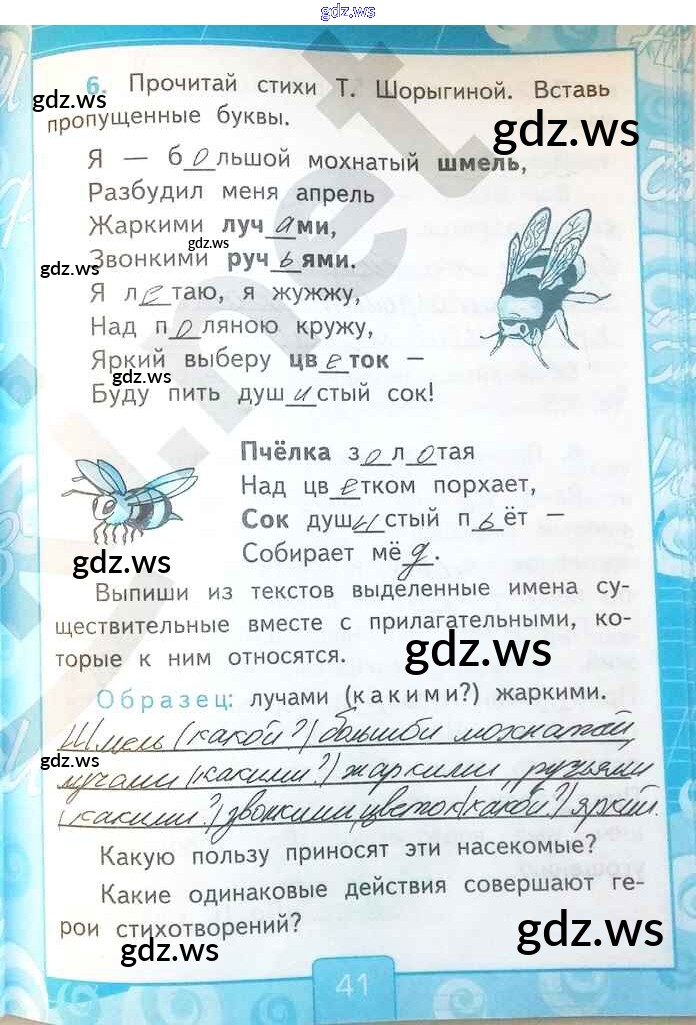 gdz.ws
6. Прочитай стихи Т. Шорыгиной. Вставь
gdz.ws
пропущенные буквы.
gdz.ws
Я — б о льшой мохнатый шмель,
Разбудил меня апрель
Жаркими луч а ми,
gdz.ws
Звонкими руч ь ями.
gdz.ws
Я л е таю, я жужжу,
Над п о ляною кружу,
Яркий выберу цв е ток –
gdz.ws
Буду пить душ и стый сок!
Пчёлка з о л о тая
Над цв е тком порхает,
Сок душ и стый п ь ёт –
Собирает мё д .
gdz.ws
Выпиши из текстов выделенные имена су-
ществительные вместе с прилагательными, ко-
торые к ним относятся.
gdz.ws
Образец: лучами (какими?) жаркими.
Шмель (какой?) большой мохнатый,
gdz.ws
лучами (какими?) жаркими ручьями
(какими?) звонкими цветок (какой?) яркий.
gdz.ws
Какую пользу приносят эти насекомые?
Какие одинаковые действия совершают ге-
рои стихотворений?
gdz.ws
gdz.ws
41